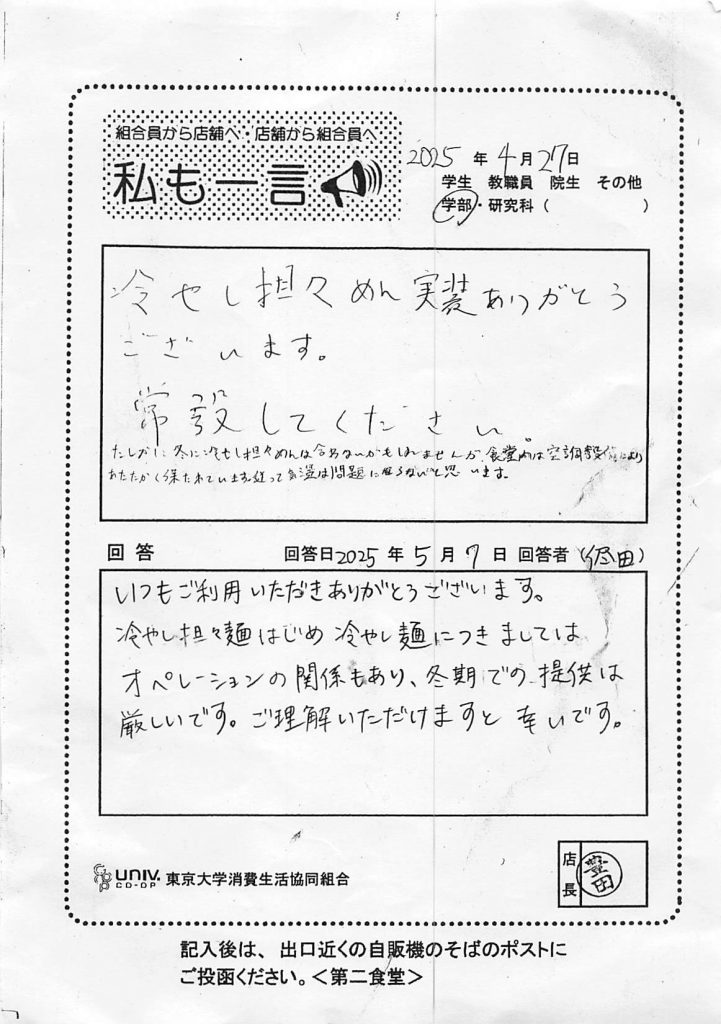 組合員から店舗へ・店舗から組合員へ
私も一言
2025 年 4 月 27 日
学生 教職員 院生 その他
学部・研究科 ( )
冷やし担々めん実装ありがとう
ございます。
常設してください。
たしかに冬に冷やし担々めんは合わないかもしれませんが、食堂内は空調設備により
あたたかく保たれています。従って気温は問題に居らないと思います。
回答 回答日 2025 年 5 月 7 日 回答者 (田)
いつもご利用いただきありがとうございます。
冷やし担々麺はじめ冷やし麺につきましては
オペレーションの関係もあり、冬期での提供は
厳しいです。ご理解いただけますと幸いです。
UNIV. CO-OP 東京大学消費生活協同組合
店長 豊田
記入後は、出口近くの自販機のそばのポストに
ご投函ください。<第二食堂>